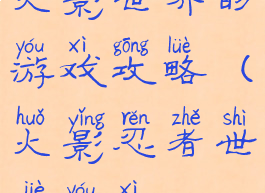 火影世界的
yóu xì gōng lüè
游戏攻略（
huǒ yǐng rěn zhě shì
火影忍者世
jiè yóu xì